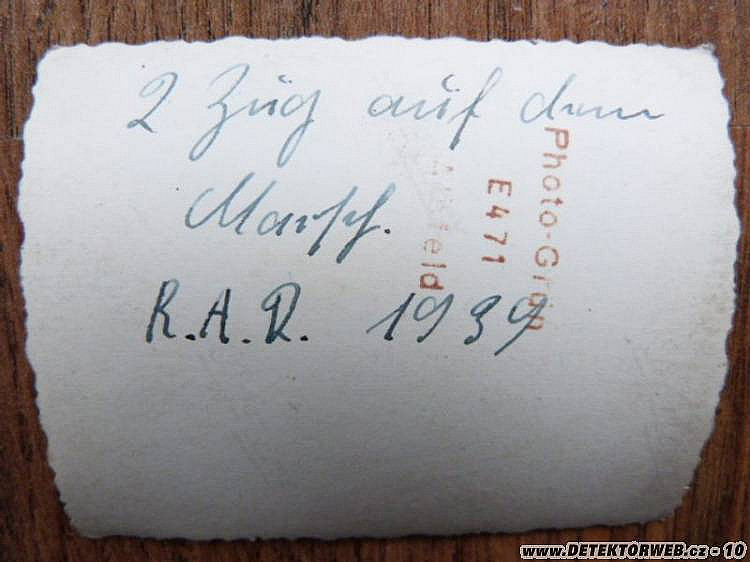 2 Zug auf dem
Marsch.
R.A.D. 1939
Photo-Gr
E471
feld
www.DETEKTORWEB.cz - 10